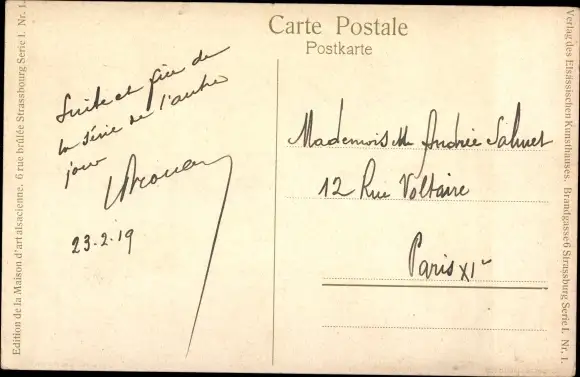 Carte Postale
Postkarte
Suite et fin de
la série de l'autre
jour
23-2-19
Mademoiselle Andrée
12 Rue Voltaire
Paris XIe
Edition de la Maison d'art alsacienne. 6 rue brûlée Strassbourg Serie I. Nr. 1.
Verlag des Elsässischen Kunsthauses. Brandgasse 6 Strassburg Serie I. Nr. 1.